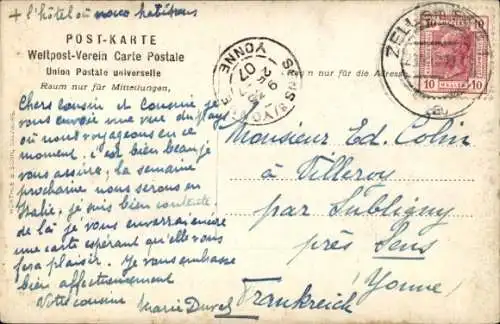 + l'hôtel où nous habitons
POST-KARTE
Weltpost-Verein Carte Postale
Union Postale universelle
Raum nur für Mitteilungen,
Raum nur für die Adresse
Chers cousin et cousine je
vous envoie une vue du pays
où nous voyageons en ce
moment. c'est bien beau je
vous assure, la semaine
prochaine nous serons en
Italie, je suis bien contente.
de là je vous enverrai encore
une carte espérant qu'elle vous
fera plaisir. Je vous embrasse
bien affectueusement
Votre cousine
Marie Duvel
Monsieur Ed. Colin
à Villeroy
par Subligny
près Sens
(Yonne)
Frankreich
SENS
YONNE
07
ZELL
10 10
10 10